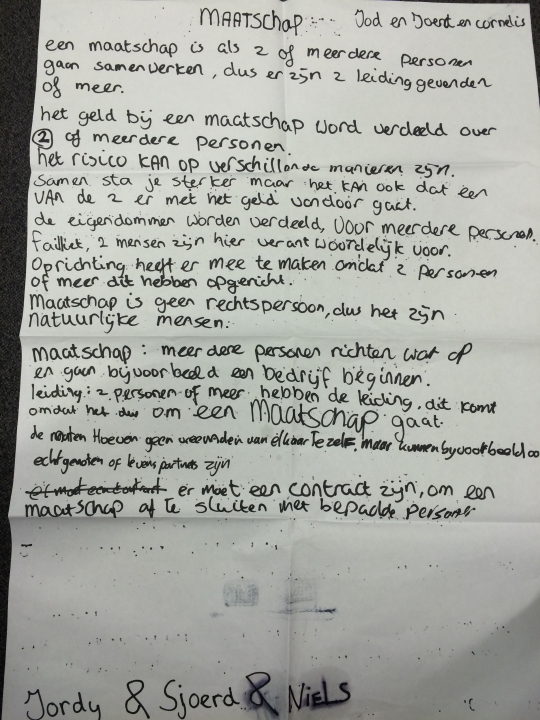 MAATSCHAP Jod en Joert en cornelis
een maatschap is als 2 of meerdere personen
gaan samenwerken, dus er zijn 2 leidinggevenden
of meer.
het geld bij een maatschap word verdeeld over
2 of meerdere personen.
het risico kAn op verschillende manieren zijn.
Samen sta je sterker maar het kAn ook dat een
VAn de 2 er met het geld vandoor gaat.
de eigendommen worden verdeeld, voor meerdere personen.
failliet, 2 mensen zijn hier verantwoordelijk voor.
Oprichting heeft er mee te maken omdat 2 personen
of meer dit hebben opgericht.
Maatschap is geen rechtspersoon, dus het zijn
natuurlijke mensen.
maatschap: meerdere personen richten wat op
en gaan bijvoorbeeld een bedrijf beginnen.
leiding: 2 personen of meer hebben de leiding, dit komt
omdat het dus om een Maatschap gaat.
de Hoeven geen vreemden van elkaar Te zelf, maar kunnen bijvoorbeeld oo
echtgenoten of levens partners zijn
er moet een contract zijn, om een
maatschap af Te sluiten met bepaalde personen
Jordy & Sjoerd & NIELS